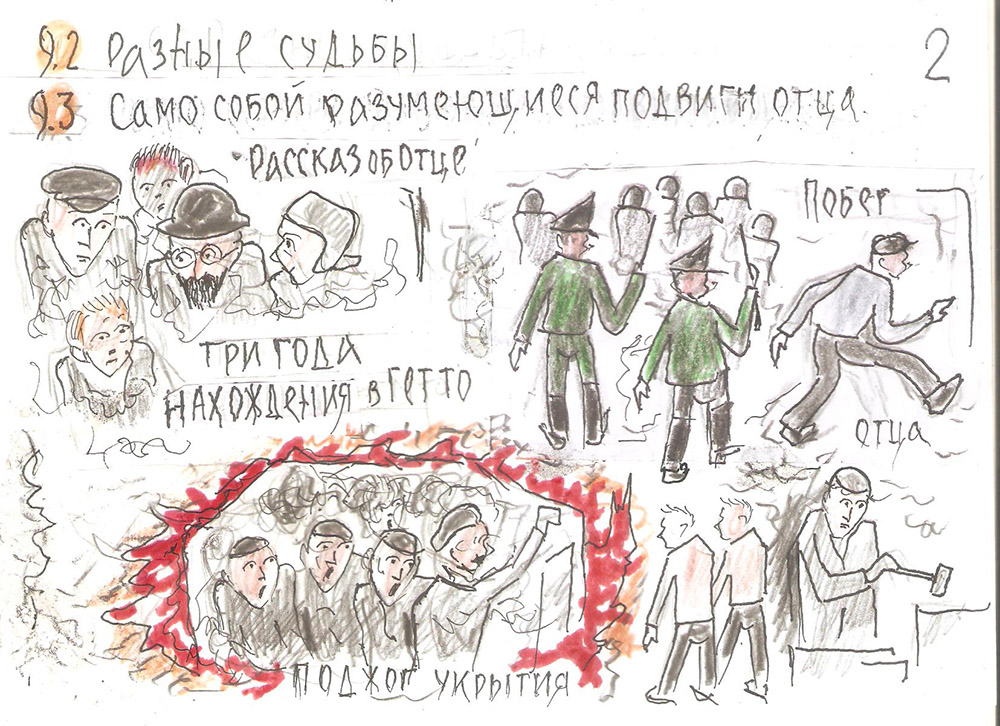 9.2 Разные судьбы
2
9.3 Само собой разумеющиеся подвиги отца.
"Рассказ об отце"
Побег
три года
нахождения в гетто
отца
поджог укрытия